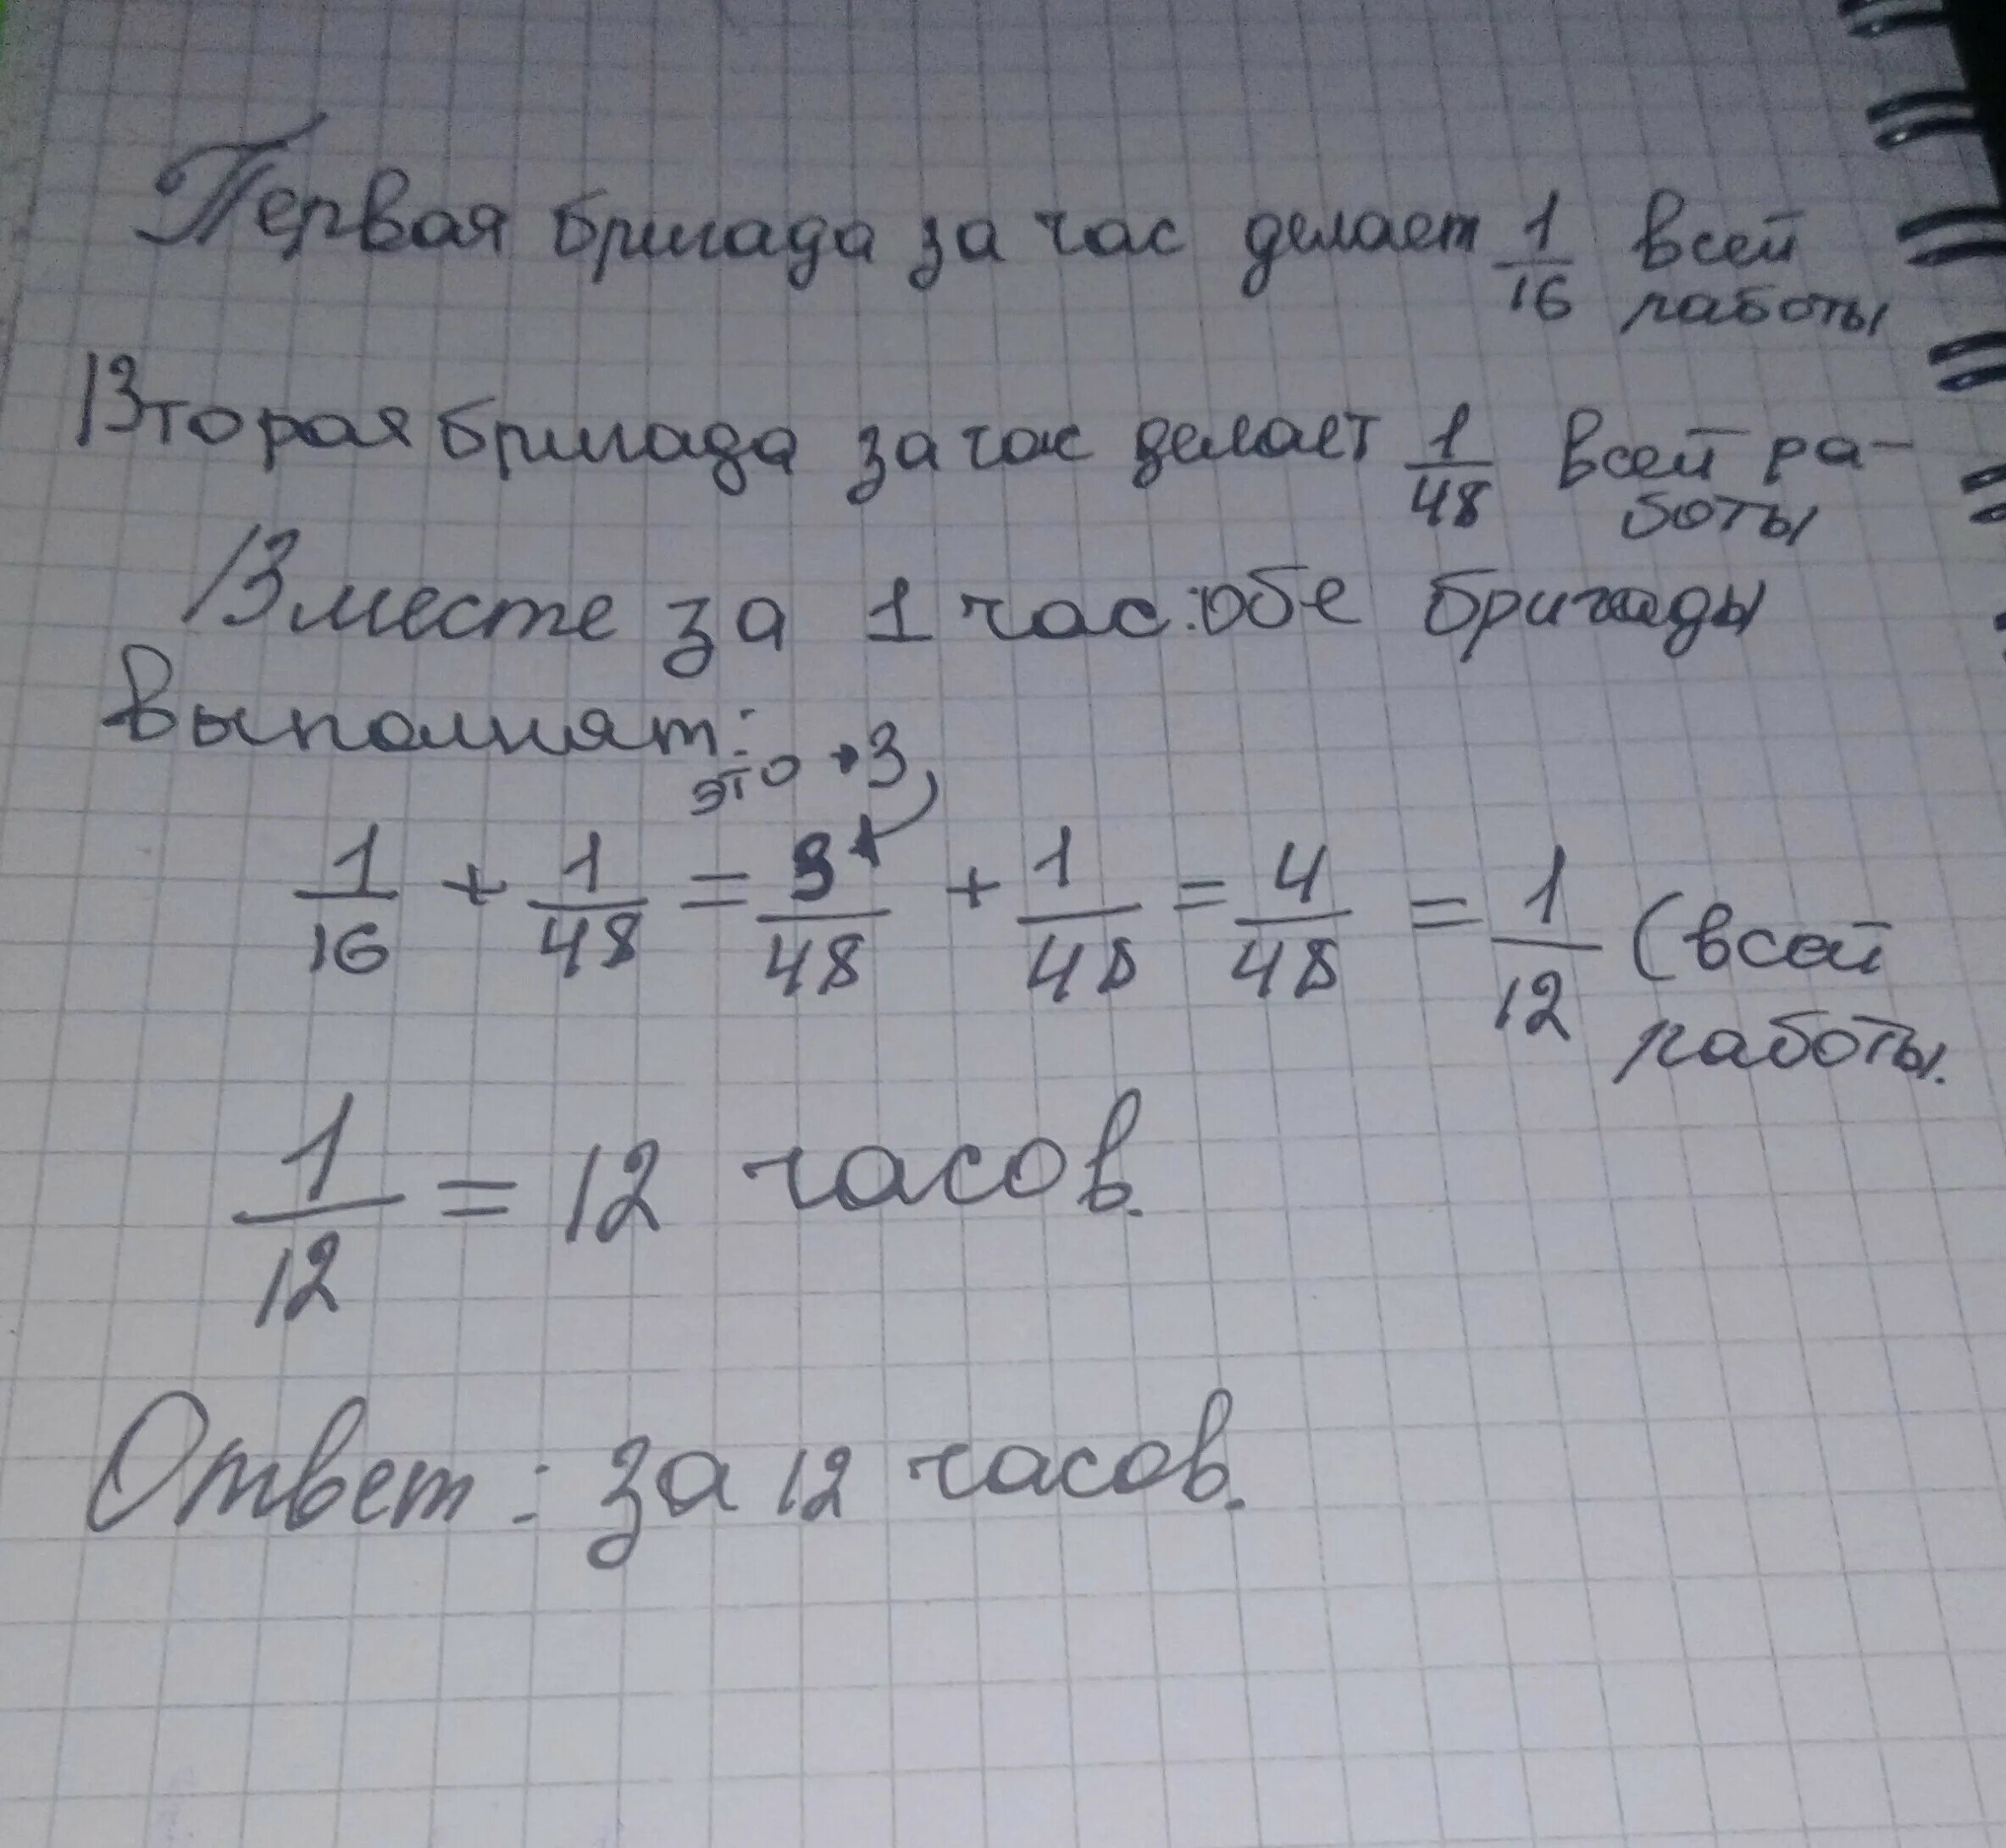 Первая бригада за час делает 1/16 всей
работы
Вторая бригада за час делает 1/48 всей ра-
боты
Вместе за 1 час обе бригады
выполнят:
это → 3
1/16 + 1/48 = 3/48 + 1/48 = 4/48 = 1/12 (всей
работы.
1/12 = 12 часов.
Ответ: за 12 часов.